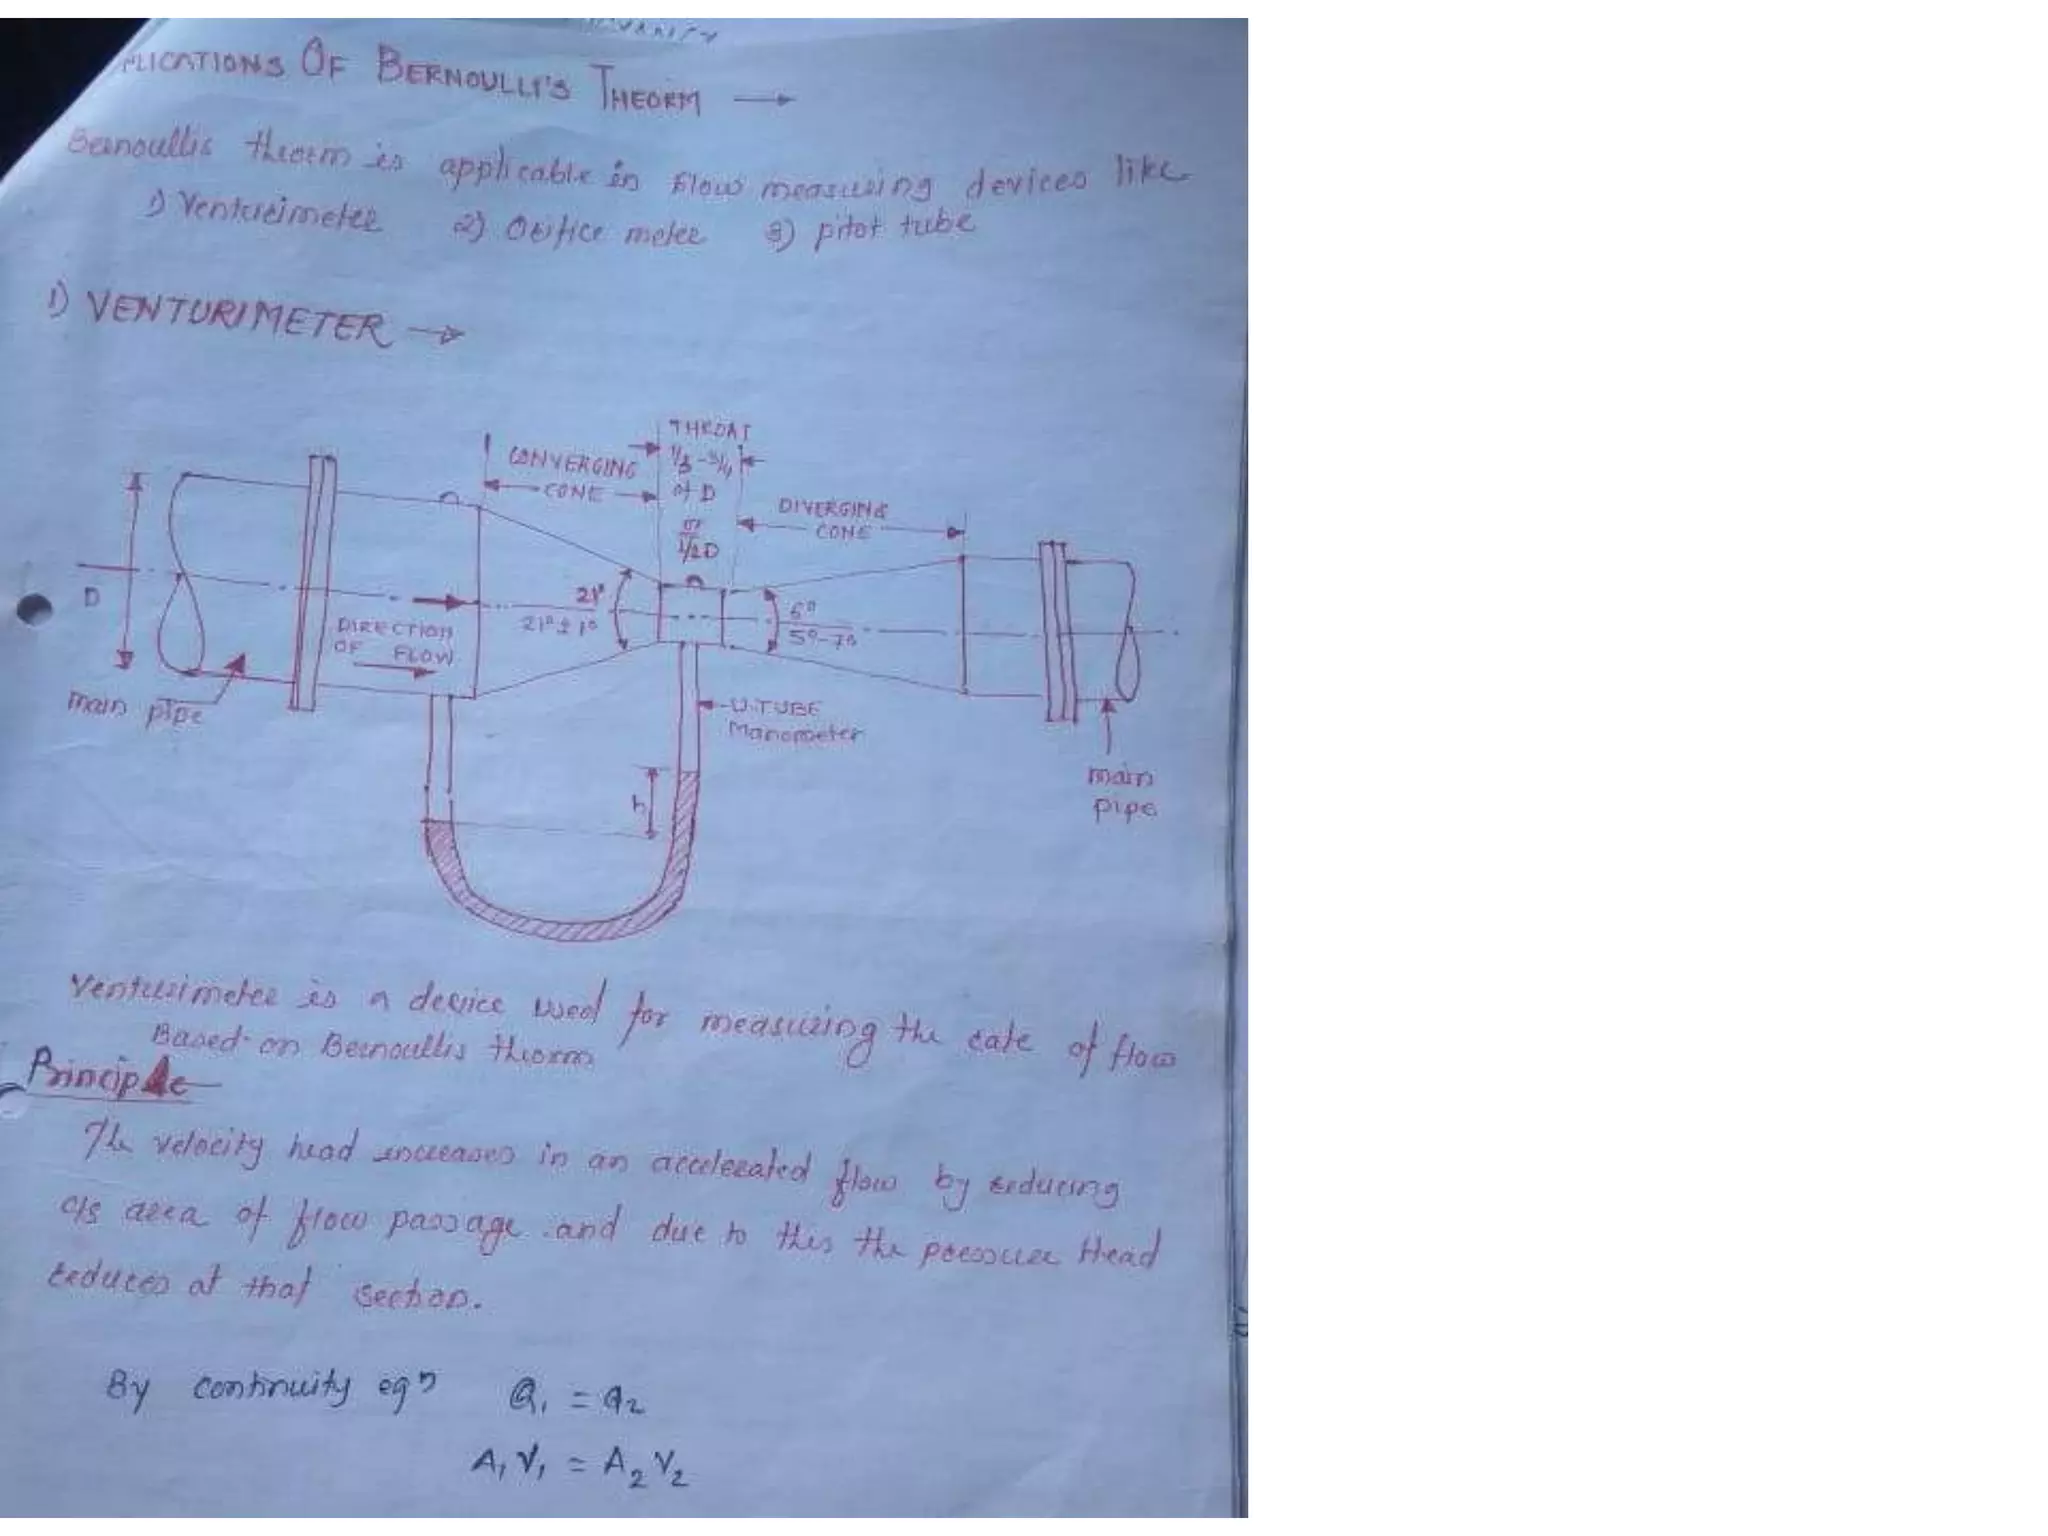 PLICATIONS OF BERNOULLI'S THEORM →
Bernoullis theorm is applicable in flow measuring devices like
1) Venturimeter 2) Orifice meter 3) pitot tube
1) VENTURIMETER →
THROAT
CONVERGING
CONE
1/3 - 3/4
of D
or
1/2 D
DIVERGING
CONE
D
DIRECTION
OF FLOW
21°
21° ± 1°
6°
5° - 7°
main pipe
U-TUBE
Manometer
h
main
pipe
Venturimeter is a device used for measuring the rate of flow
Based on Bernoullis theorm
Principle
The velocity head increases in an accelerated flow by reducing
c/s area of flow passage and due to this the pressure Head
reduces at that section.
By continuity eqn Q1 = Q2
A1 V1 = A2 V2